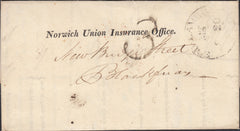 Norwich Union Insurance Office.
3
New Bridge Street
Blackfriars